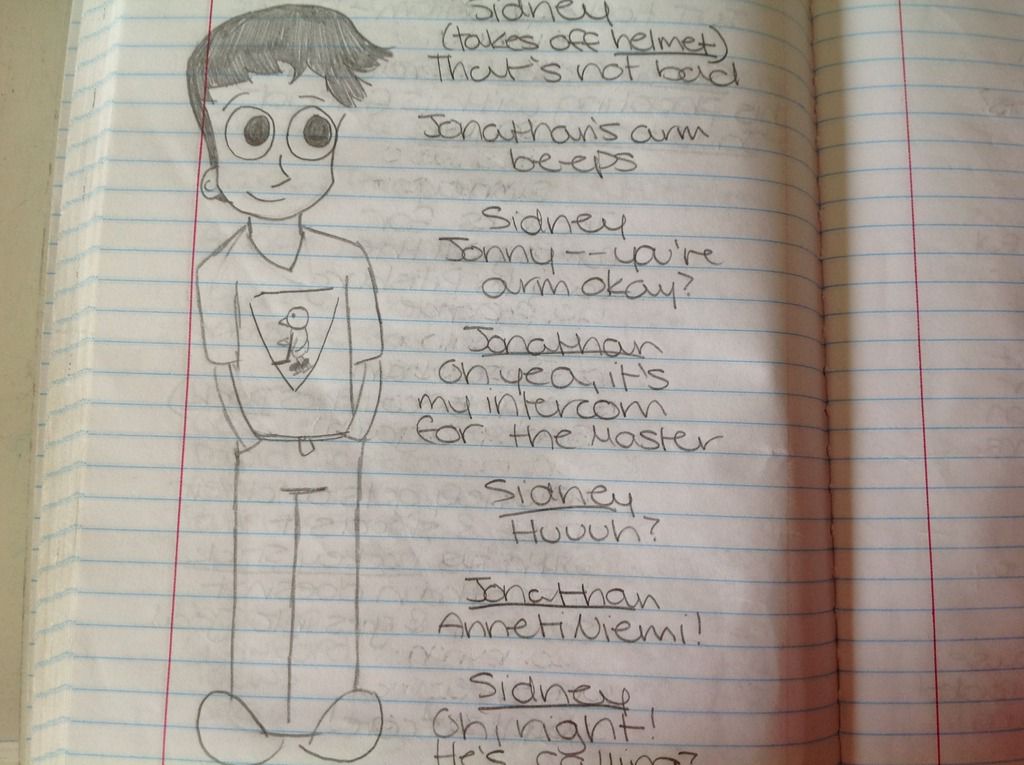 Sidney
(takes off helmet)
That's not bad
Jonathan's arm
beeps
Sidney
Jonny--you're
arm okay?
Jonathan
Oh yea, it's
my intercom
for the Master
Sidney
Huuuh?
Jonathan
Anneti Niemi!
Sidney
Oh, right!
He's calling?